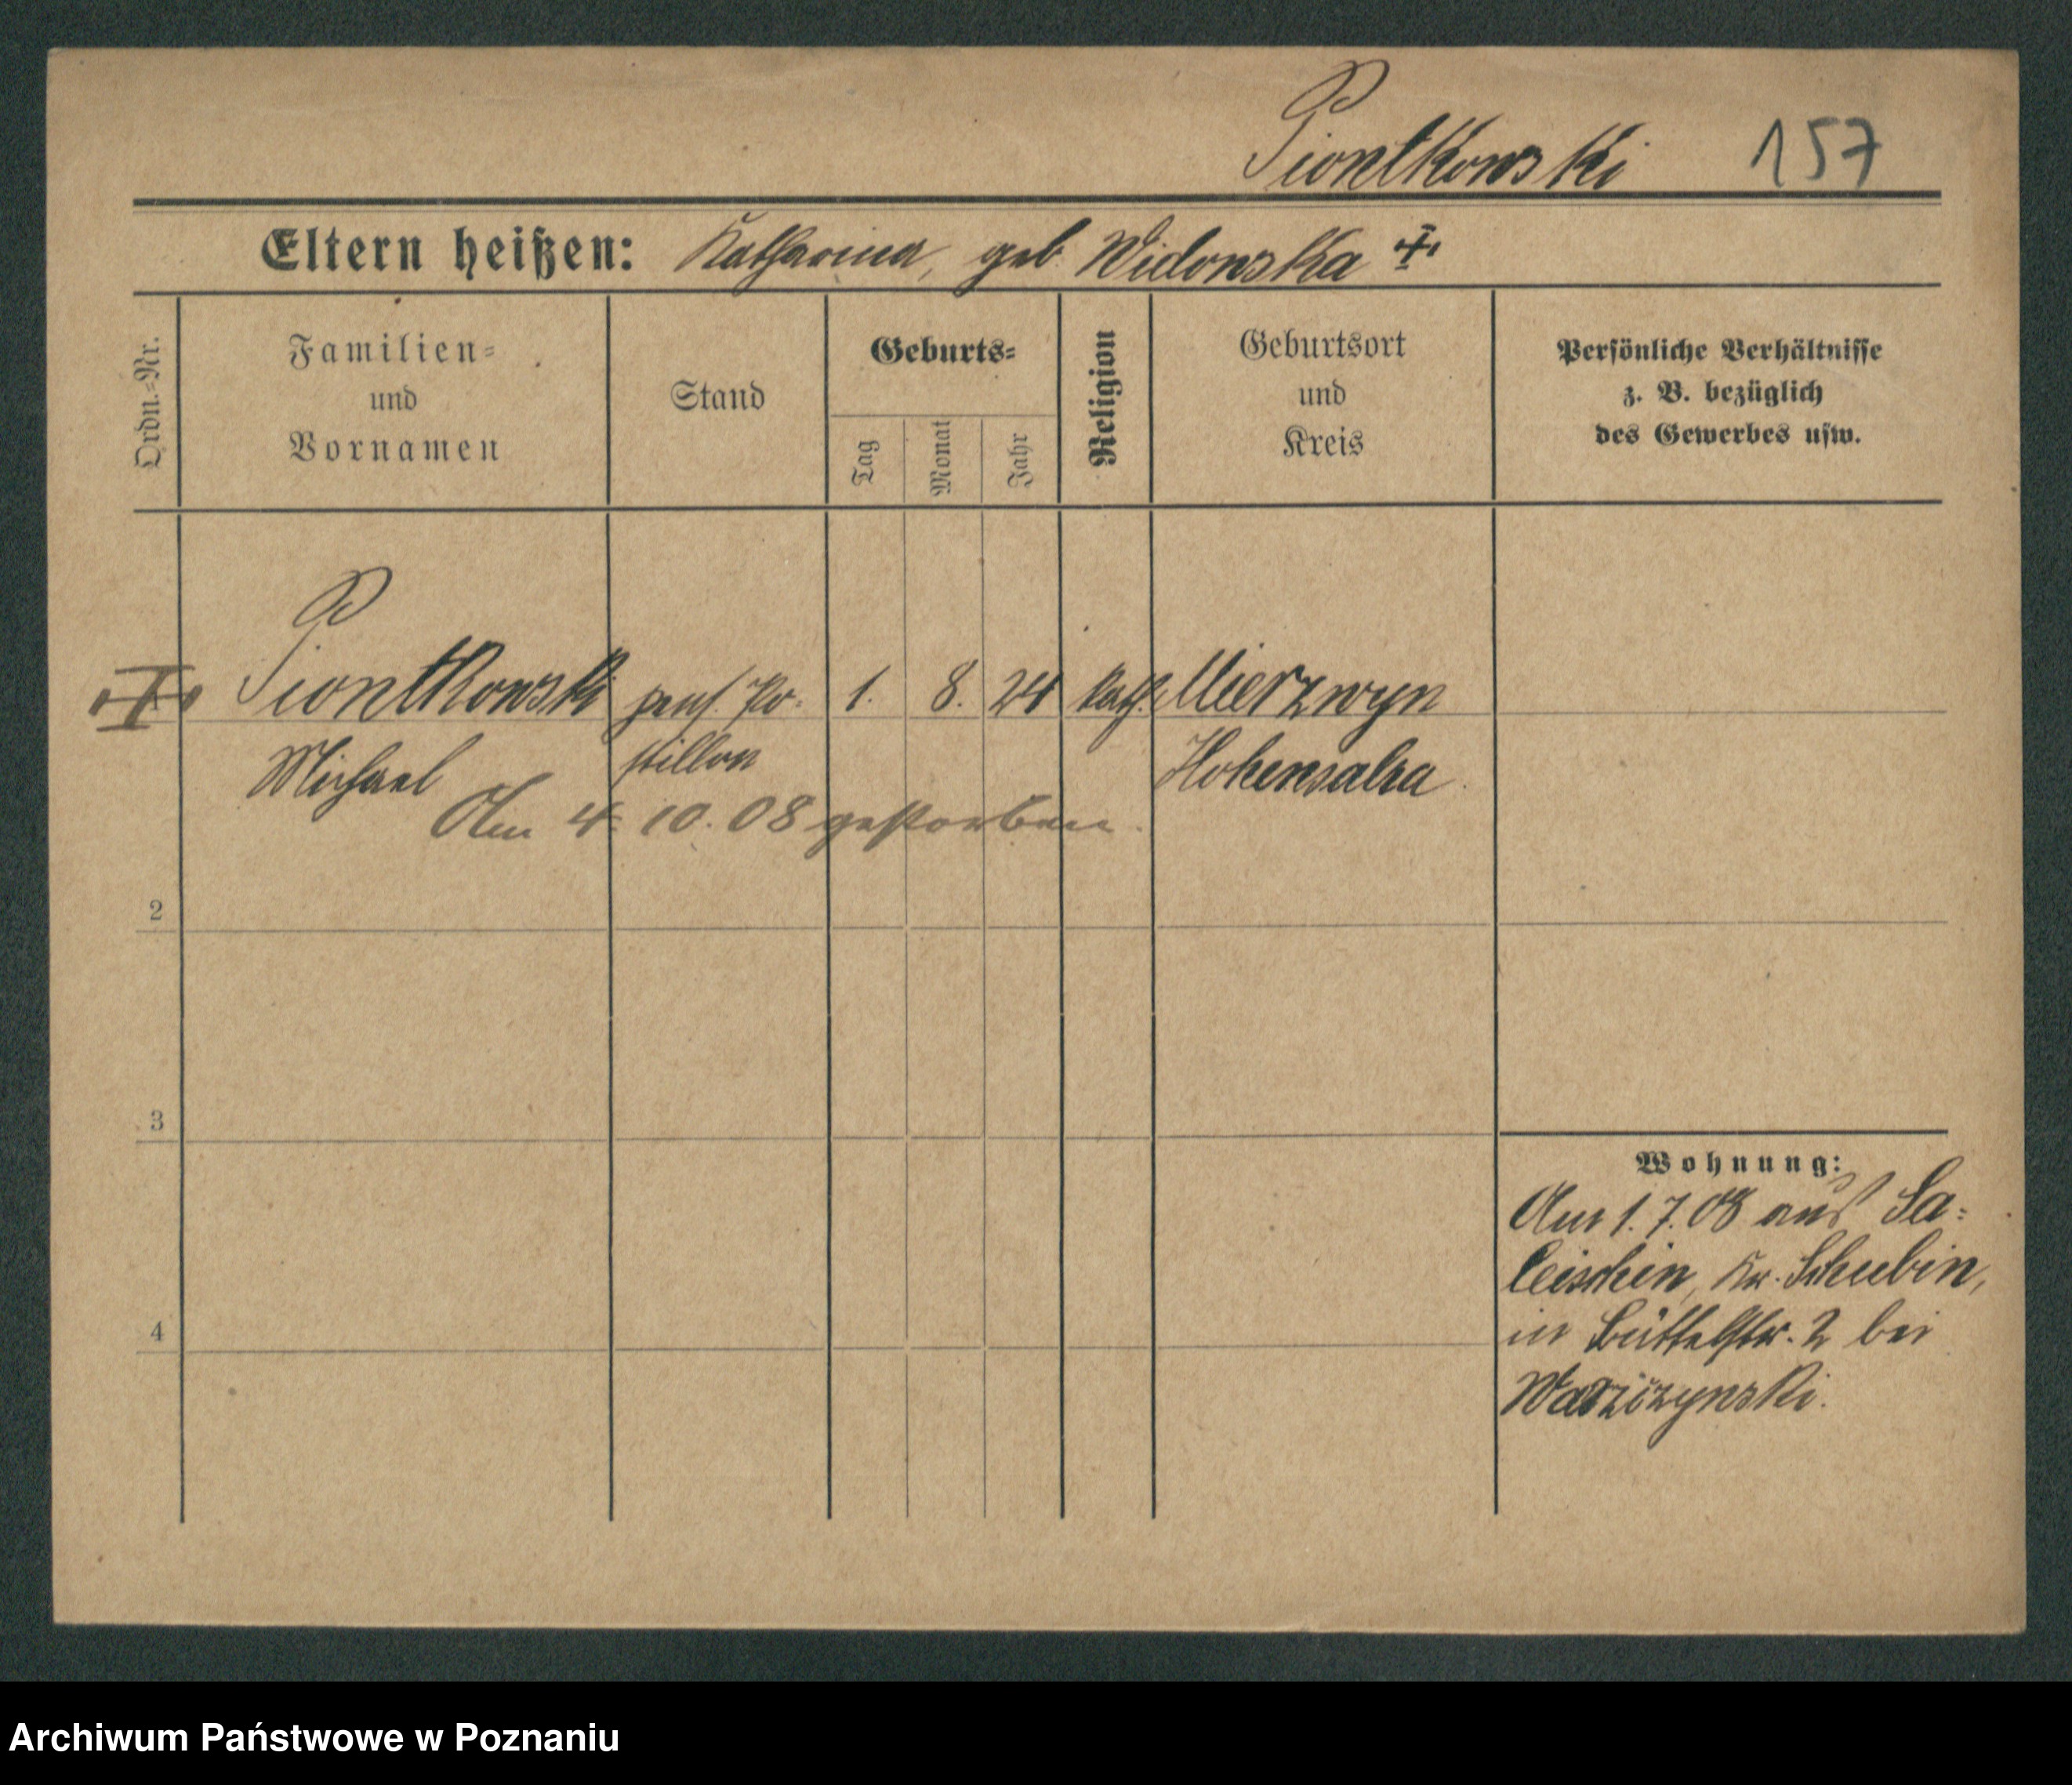 Piontkowski 157
Eltern heißen: Katharina, geb. Widonska
Ordn.-Nr.
Familien- und Vornamen
Stand
Geburts-
Tag
Monat
Jahr
Religion
Geburtsort und Kreis
Persönliche Verhältnisse
z. B. bezüglich
des Gewerbes usw.
Piontkowski pens. Po- 1. 8. 24 kath. Mierzwyn
Michael stillon Hohensalza
Am 4. 10. 08 gestorben.
2
3
Wohnung:
Am 1. 7. 08 aus Sa-
leischin, Kr. Schubin,
4
in Büttelstr. 2 bei
Archiwum Państwowe w Poznaniu